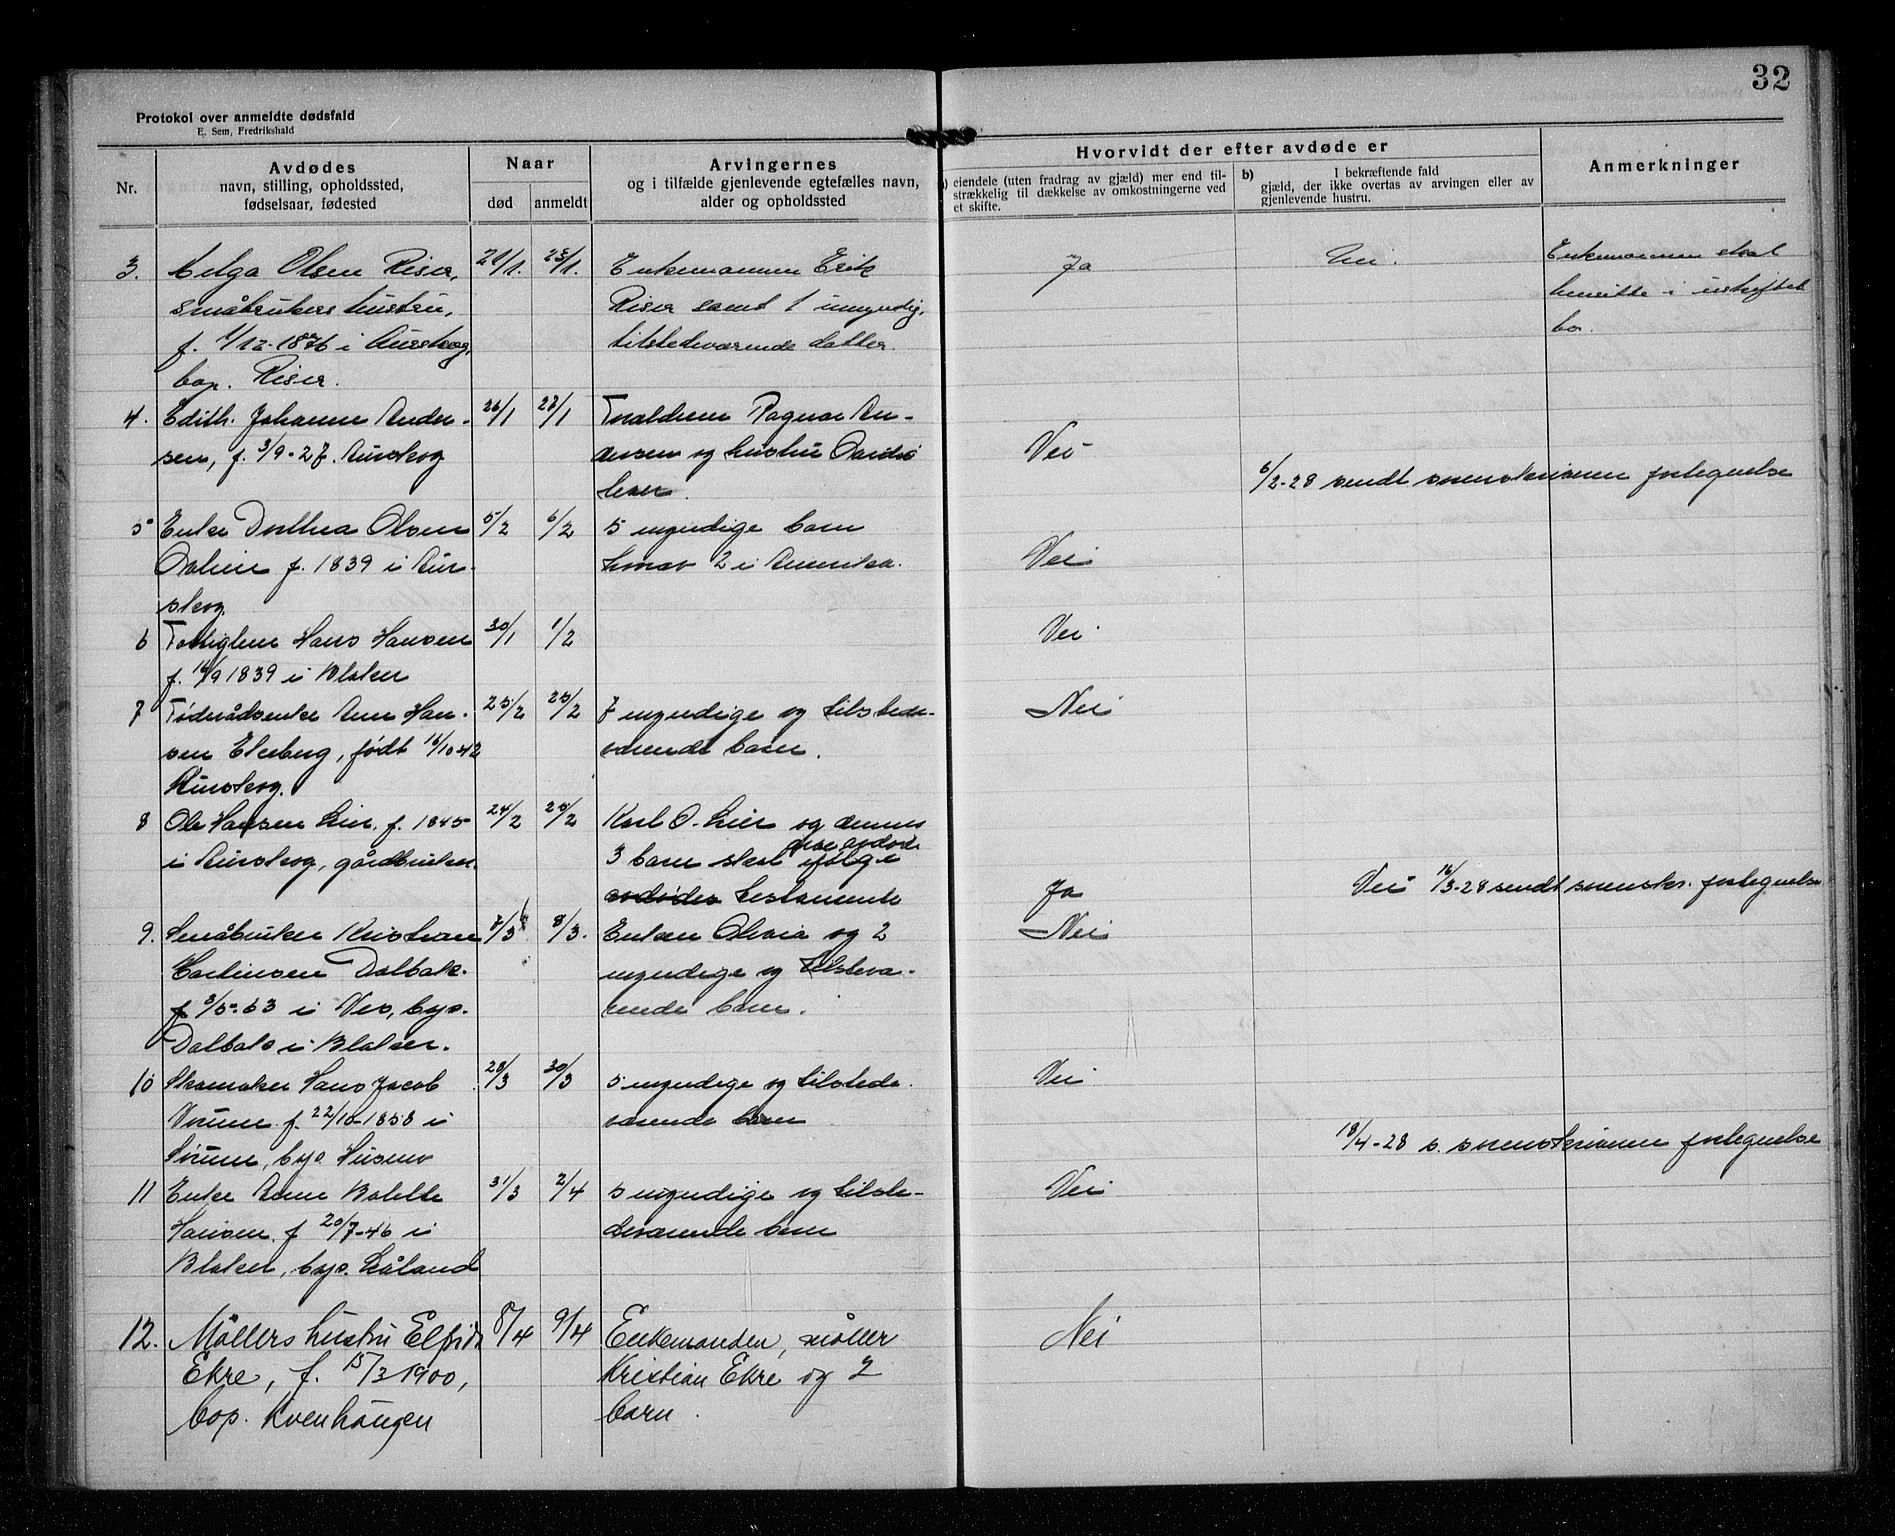 32
Protokol over anmeldte dødsfald
E. Sem, Fredrikshald
Nr.
Avdødes
navn, stilling, opholdssted,
fødselsaar, fødested
Naar
død
anmeldt
Arvingernes
og i tilfælde gjenlevende egtefælles navn,
alder og opholdssted
Hvorvidt der efter avdøde er
a) eiendele (uten fradrag av gjæld) mer end til-
strækkelig til dækkelse av omkostningerne ved
et skifte.
b) I bekræftende fald
gjæld, der ikke overtas av arvingen eller av
gjenlevende hustru.
Anmerkninger
3. Helga Olsen Riser, 21/1. 25/1. Enkemannen Erik Ja Nei. Enkemannen skal
småbrukers hustru, Riser samt 1 umyndig, hensitte i uskiftet
f. 1/12-1876 i Aurskog, tilstedeværende datter. bo.
bop. Riser.
4. Edith Johanne Ander- 26/1 27/1 Foreldrene Ragnar An-
sen, f. 3/9-27. Aurskog dersen og hustru Nei
6/2-28 sendt sorenskriveren fortegnelse
5 Enke Dorthea Olsen 5/2 6/2 5 myndige barn
f. 1839 i Aur- hvorav 2 i Amerika. Nei
skog.
6 Fattiglem Hans Hansen 30/1 1/2 Nei
f. 14/9 1839 i Blaker
7 Føderådsenke Ann Han- 25/2 25/2 7 myndige og tilstede- Nei
sen Ekeberg, født 16/10-42 værende barn.
Aurskog.
8 Ole Hansen Lier. f. 1845 24/2 25/2 Karl O. Lier og dennes
i Aurskog, gårdbruker. 3 barn skal ifølge avdøde
avdødes testamente Ja Nei 16/3-28 sendt sorenskr. fortegnelse
9. Småbruker Kristian 7/3 8/3. Enken Olivia og 2 Nei
Martinsen Dalbak. myndige og tilsteva-
f 3/5-63 i Nes, bop. rende barn.
Dalbak i Blaker.
10 Skomaker Hans Jacob 28/3 30/3 5 myndige og tilstede- Nei
f. 22/10-1858 i værende barn
Sørum, bop. Husmo 18/4-28 s. sorenskriveren fortegnelse
11 Enke Anne Bolette 31/3 2/4 5 myndige og tilste- Nei
Hansen. f 20/7-46 i deværende barn
Blaker, bop. Haaland
12. Møllers hustru Elfrida 8/4 9/4 Enkemanden, møller Nei
Ekre, f. 15/3 1900, Kristian Ekre og 2
bop. Kvenhaugen barn.